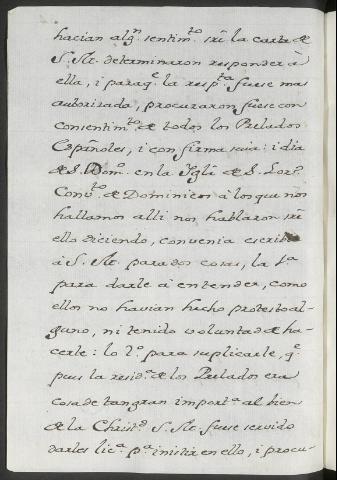 hacian alg.ⁿ sentim.ᵗᵒ srè la carta de
S. St. determinaron responder à
ella, i paraq.ᵉ la resp.ᵗᵃ fuese mas
autorizada, procuraron fuese con
consentim.ᵗᵒ de todos los Prelados
Españoles, i con firma suia: i dia
de S. Dom.º en la Igl.ᵃ de S. Lor.º
Conv.ᵗᵒ de Dominicos à los que nos
hallamos alli nos hablaron srè
ello diciendo, convenia escribir
à S. St. para dos cosas, la 1.ᵃ
para darle à entender, como
ellos no havian hecho protesto al-
guno, ni tenido voluntad de ha-
cerle: lo 2.º para suplicarle, q.ᵉ
pues la resid.ᵃ de los Prelados era
cosa de tan gran import.ᵃ al bien
de la Christ.ᵈ S. St. fuese servido
darles lic.ᵃ p.ᵃ insistir en ello, i procu-